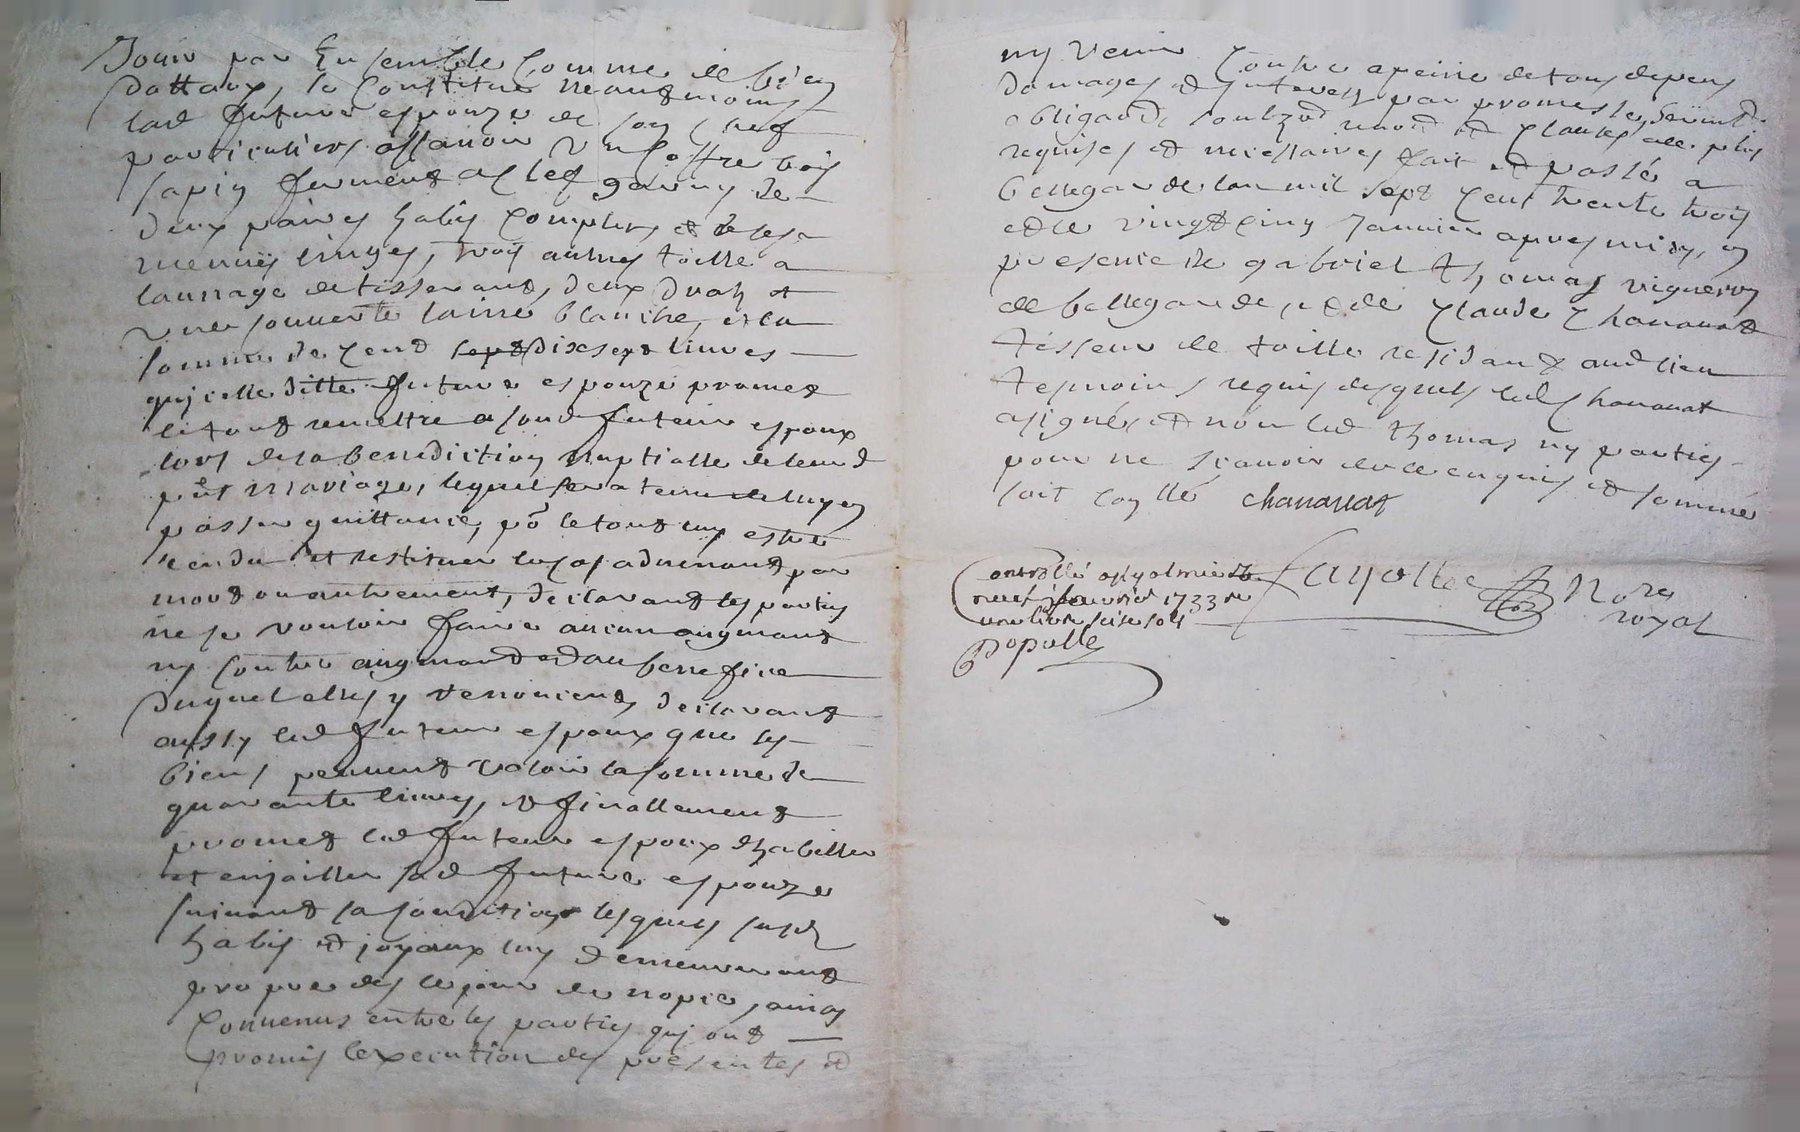 Jouir par Ensemble Comme de bien
dottaux, se Constitue neantmoins
lad future espouze de son chef
particuliers assauoir un Coffre bois
sapin fermant a clef garny de
deux paires habis complets et de ses
menus linges, trois aulnes toille a
launage de tisserand, deux drats et
une couuerte laine blanche, et la
somme de Cent dixsept liures
quicelle ditte future espouze promet
le tout remettre a sond futeur espoux
lors de la benediction nuptialle de leurd
pnt mariage, lequel sera tenu de luy en
passer quittance, po le tout luy estre
rendu et restitue le cas aduenant par
mort ou autrement, declarant les parties
ne se vouloir faire aucun augmant
ny contre augmant et au benefice
duquel elles y renoncent, declarant
aussy led futeur espoux que ses
biens peuuent valoir la somme de
quarante liures, et finallement
promet led futeur espoux dhabiller
et enjoailler sad future espouze
suiuant sa condition lesquels susd
habis et joyaux luy demeureront
propre des le jour de nopce, ainsy
Conuenus entre les parties qui ont
promis lexecution des presentes et
ny venir Contre a peine de tous depens
domages et interests par promesse, serment
obligaon soubzon renon et clauses alle plus
requises et necessaires fait et passé a
bellegarde lan mil sept Cent trente trois
et le vingt cinq Januier apres midy, en
presence de gabriel thomas vigneron
de bellegarde, et de Claude Chanauat
tisseur de toille residant aud lieu
tesmoins requis desquels led Chanauat
a signé, et non led thomas ny parties
pour ne scauoir de ce enquis et sommé
soit Coyllé chanauat
Controllé a st galmier le
neuf feburier 1733 re
une liure seize sols
Popolle
Fayolle Nore
royal